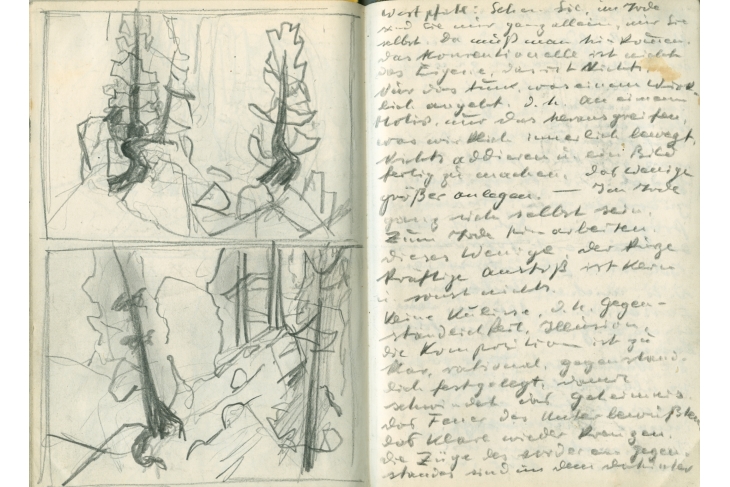 Westpfahl: Sehen Sie, im Tode
sind Sie nur ganz allein, nur Sie
selbst. Da muß man hinkommen.
Das Konventionelle ist nicht
das Eigene, das ist Nichts,
Nur das tun, was einem wirk-
lich angeht. D.h. An einem
Motiv, nur das herausgreifen,
was wirklich innerlich bewegt,
Nichts addieren u. ein Bild
fertig zu machen, das Wenige
größer anlegen. — Im Tode
ganz sich selbst sein.
Zum Tode hin arbeiten.
dieses Wenige der
kräftige Anstoß ist
u. sonst nichts.
Keine Kulisse, d.h. Gegen-
ständlichkeit, Illusion,
die Komposition ist zu
klar, rational, gegenständ-
lich festgelegt, damit
schwindet das Geheimnis.
das Feuer des Unterbewußten
das Klare wieder
die Züge des vorderen Gegen-
standes sind in dem dahinter